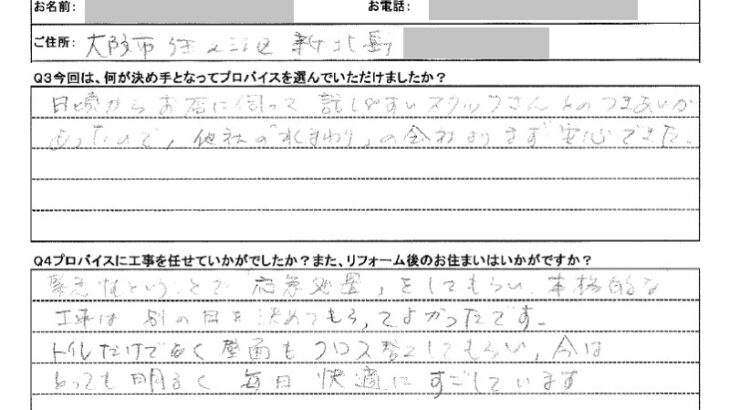 お名前: お電話:
ご住所: 大阪市住之江区新北島
Q3今回は、何が決め手となってプロバイスを選んでいただけましたか?
日頃からお店に伺って 話しやすいスタッフさんとのつきあいが
あったので, 他社の「水まわり」の会社よりまず安心できた.
Q4プロバイスに工事を任せていかがでしたか?また、リフォーム後のお住まいはいかがですか?
緊急性ということで「応急処置」をしてもらい 本格的な
工事は 別の日を決めてもらってよかったです.
トイレだけでなく壁面もクロス替えしてもらい, 今は
とっても明るく 毎日 快適にすごしています